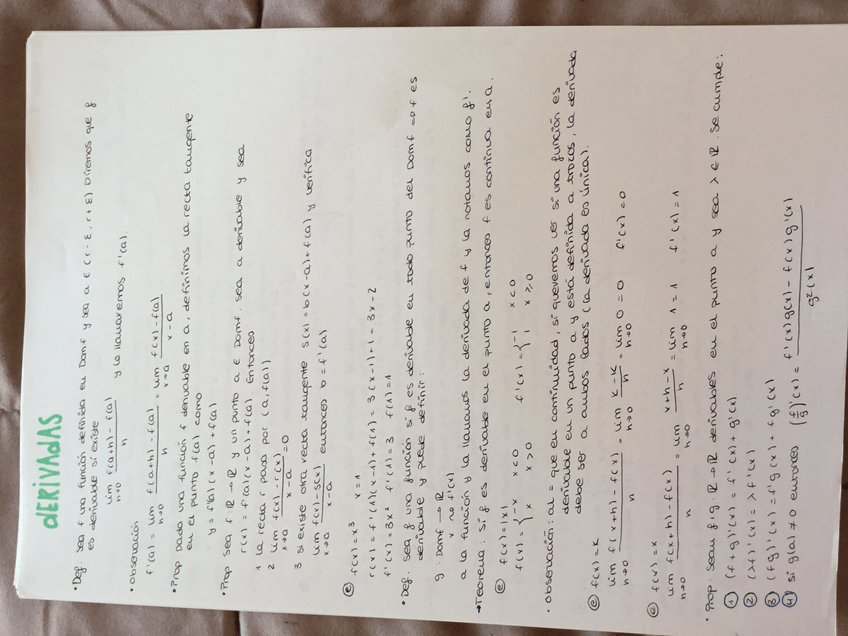 DERIVADAS
• Def sea f una función definida en Domf y sea a ∈ (r-ε, r+ε) Diremos que f
es derivable si existe
lim h→0 f(a+h) - f(a) / h y lo llamaremos f'(a)
• Observación
f'(a) = lim h→0 f(a+h) - f(a) / h = lim x→a f(x) - f(a) / x-a
• Prop Dada una función f derivable en a, definimos la recta tangente
en el punto f(a) como
y = f'(a)(x-a) + f(a)
• Prop sea f: ℝ→ℝ y un punto a ∈ Domf. sea a derivable y sea
r(x) = f'(a)(x-a) + f(a). Entonces
1 La recta r pasa por (a, f(a))
2 lim x→a f(x) - r(x) / x-a = 0
3 si existe otra recta tangente s(x) = b(x-a) + f(a) y verifica
lim x→a f(x) - s(x) / x-a entonces b = f'(a)
e f(x) = x³ x = 1
r(x) = f'(1)(x-1) + f(1) = 3(x-1) + 1 = 3x-2
f'(x) = 3x² f'(1) = 3 f(1) = 1
• Def. sea f una función si f es derivable en todo punto del Domf ⇒ f es
derivable y puede definir:
g: Domf → ℝ
x ⇝ f'(x)
a la función y la llamamos la derivada de f y la notamos como f'.
→ Teorema. si f es derivable en el punto a, entonces f es continua en a.
e f(x) = |x|
f(x) = { -x x<0 f'(x) = { -1 x<0
x x≥0 1 x≥0
• Observación: al = que en continuidad, si queremos ver si una función es
derivable en un punto a y está definida a trozos, la derivada
debe ser a ambos lados (la derivada es única).
e f(x) = k
lim h→0 f(x+h) - f(x) / h = lim h→0 k-k / h = lim h→0 0 = 0 f'(x) = 0
e f(x) = x
lim h→0 f(x+h) - f(x) / h = lim h→0 x+h-x / h = lim h→0 1 = 1 f'(x) = 1
• Prop: sean f, g ℝ→ℝ derivables en el punto a y sea λ ∈ ℝ se cumple:
1 (f+g)'(x) = f'(x) + g'(x)
2 (λf)'(x) = λ f'(x)
3 (fg)'(x) = f'g(x) + fg'(x)
4 si g(a) ≠ 0 entonces (f/g)'(x) = f'(x)g(x) - f(x)g'(x) / g²(x)